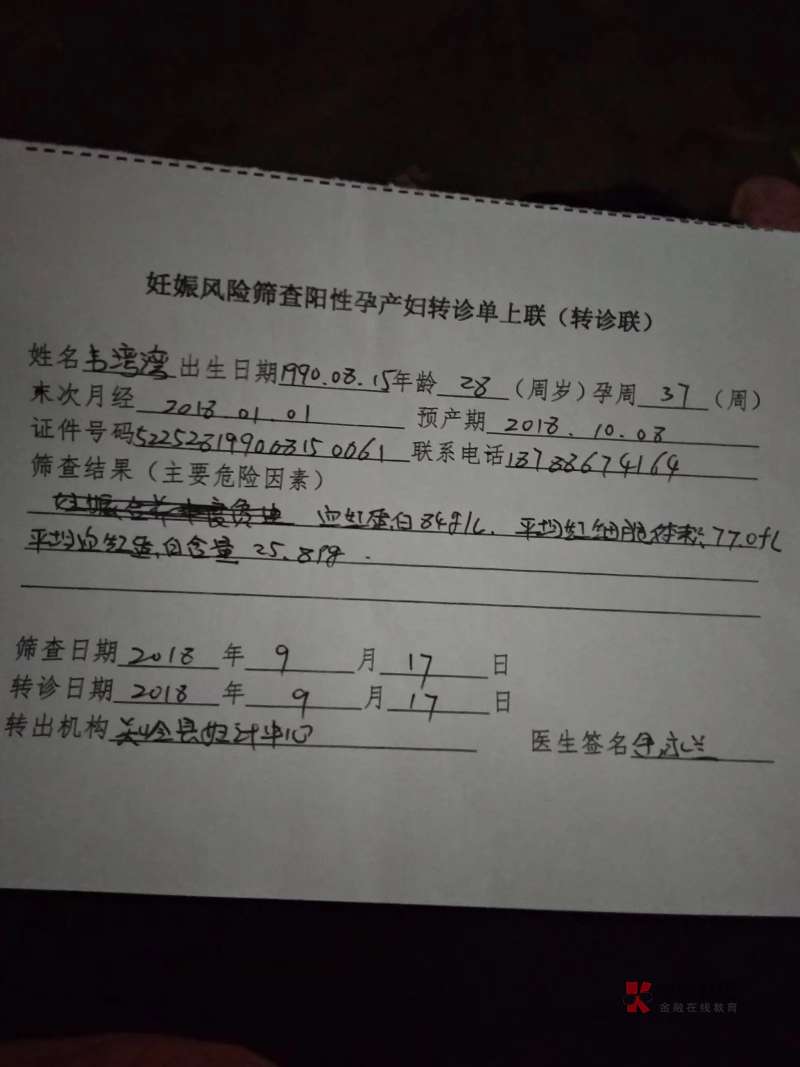 妊娠风险筛查阳性孕产妇转诊单上联（转诊联）
姓名 韦湾湾 出生日期 1990.08.15 年龄 28 （周岁）孕周 37 （周）
末次月经 2018.01.01 预产期 2018.10.08
证件号码 522528199008150061 联系电话 13788674164
筛查结果（主要危险因素）
血红蛋白84g/L. 平均红细胞体积 77.0fL
平均血红蛋白含量 25.8Pg.
筛查日期 2018 年 9 月 17 日
转诊日期 2018 年 9 月 17 日
转出机构 关岭县妇计中心 医生签名
金融在线教育